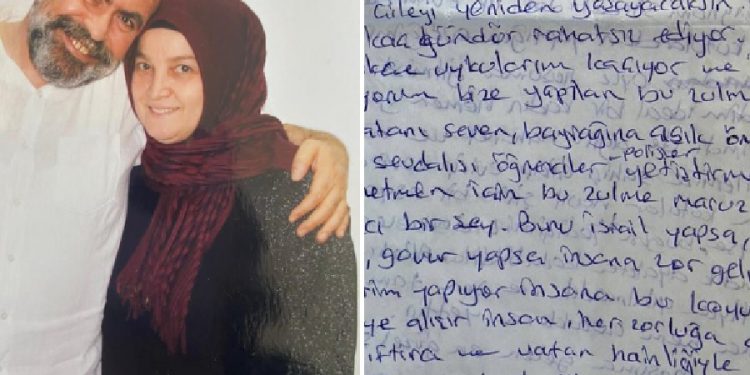 Çileyi yeniden yaşayacaksın.
gündür rahatsız ediyor.
uykularım kaçıyor ne
bize yapılan bu zulm
seven, bayrağına aşık ön
sevdalısı öğrenciler - polisler yetiştirm
etmen için bu zulme maruz
ci bir şey. Bunu israil yapsa,
, gavur yapsa insana zor geli
rim yapıyor insana bu koyu
ye alışır insan, her zorluğa
iftira ve vatan hainliğiyle